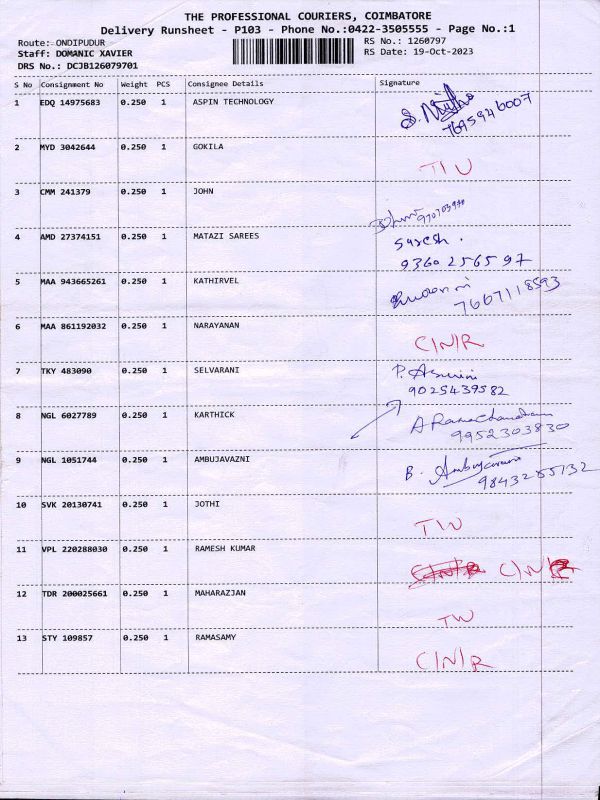 THE PROFESSIONAL COURIERS, COIMBATORE
Delivery Runsheet - P103 - Phone No.:0422-3505555 - Page No.:1
Route: ONDIPUDUR RS No.: 1260797
Staff: DOMANIC XAVIER RS Date: 19-Oct-2023
DRS No.: DCJB126079701
S No Consignment No Weight PCS Consignee Details Signature
1 EDQ 14975683 0.250 1 ASPIN TECHNOLOGY
7695946007
2 MYD 3042644 0.250 1 GOKILA
3 CMM 241379 0.250 1 JOHN
4 AMD 27374151 0.250 1 MATAZI SAREES Suresh.
9360256597
5 MAA 943665261 0.250 1 KATHIRVEL
7667118593
6 MAA 861192032 0.250 1 NARAYANAN C/N/R
7 TKY 483090 0.250 1 SELVARANI
9025439582
8 NGL 6027789 0.250 1 KARTHICK A Ramachandran
9952303830
9 NGL 1051744 0.250 1 AMBUJAVAZNI
10 SVK 20130741 0.250 1 JOTHI
11 VPL 220288030 0.250 1 RAMESH KUMAR C/N/R
12 TDR 200025661 0.250 1 MAHARAZJAN
13 STY 109857 0.250 1 RAMASAMY C/N/R